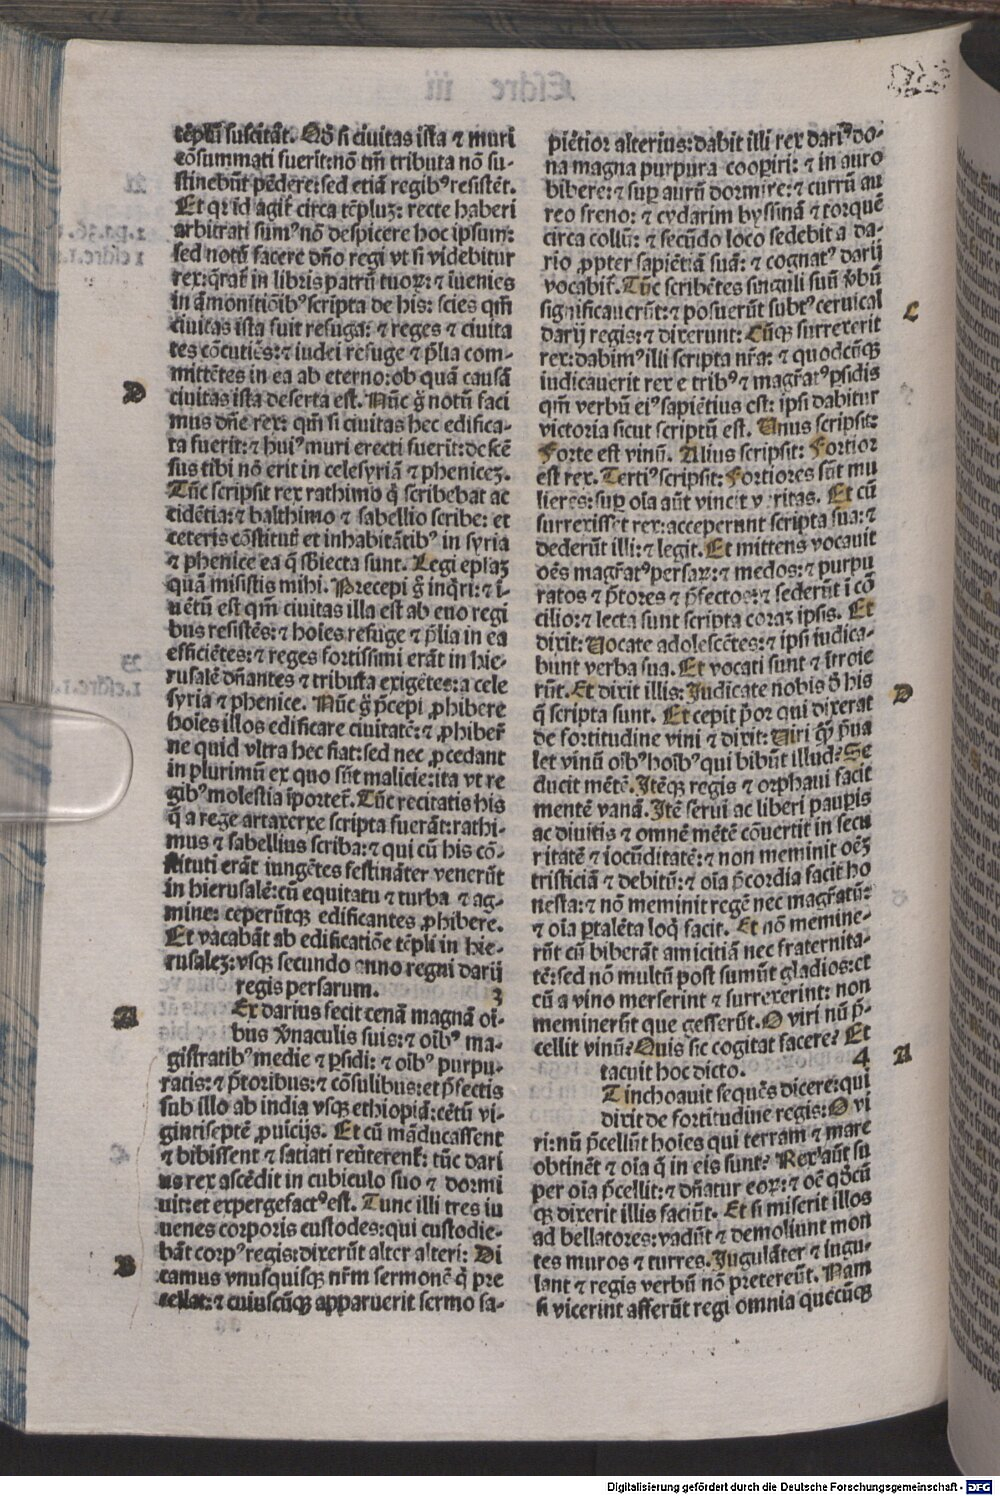 tēplū suscitāt. Qđ si ciuitas ista ⁊ muri
cōsummati fuerit: nō tm̄ tributa nō su-
stinebūt pēdere: sed etiā regibꝰ resistēt.
Et qꝛ id agit̄ circa tēpluꝫ: recte haberi
arbitrati sumꝰ nō despicere hoc ipsum:
sed notū facere dn̄o regi vt si videbitur
rex: q̄rat̄ in libris patrū tuoꝝ: ⁊ iuenies
in āmonitiōibꝰ scripta de his: scies qm̄
ciuitas ista fuit refuga: ⁊ reges ⁊ ciuita
tes cōcutiēs: ⁊ iudei refuge ⁊ p̄lia com-
mittētes in ea ab eterno: ob quā causā
D
ciuitas ista deserta est. Nūc g̊ notū faci
mus dn̄e rex: qm̄ si ciuitas hec edifica-
ta fuerit: ⁊ huiꝰ muri erecti fuerit: descē
sus tibi nō erit in celesyriā ⁊ pheniceꝫ.
Tūc scripsit rex rathimo q̄ scribebat ac
cidētia: ⁊ balthimo ⁊ sabellio scribe: et
ceteris cōstitut̄ et inhabitātibꝰ in syria
⁊ phenice ea q̄ sbiecta sunt. Legi epl̄aꝫ
quā misistis mihi. Precepi g̊ inq̄ri: ⁊ ī-
uētū est qm̄ ciuitas illa est ab euo regi
bus resistēs: ⁊ hoīes refuge ⁊ p̄lia in ea
efficiētes: ⁊ reges fortissimi erāt in hie-
rusalē dn̄antes ⁊ tributa exigētes: a cele
syria ⁊ phenice. Nūc g̊ p̄cepi ꝓhibere
hoīes illos edificare ciuitatē: ⁊ ꝓhiber̄
ne quid vltra hec fiat: sed nec ꝓcedant
in plurimū ex quo sūt malicie: ita vt re
gibꝰ molestia īportet̄. Tūc recitatis his
q̄ a rege artaxerxe scripta fuerāt: rathi-
mus ⁊ sabellius scriba: ⁊ qui cū his cō-
stituti erāt iungētes festināter venerūt
in hierusalē: cū equitatu ⁊ turba ⁊ ag-
mine: ceperūtqꝫ edificantes ꝓhibere.
Et vacabāt ab edificatiōe tēpli in hie-
rusaleꝫ: vsqꝫ secundo anno regni darij
regis persarum. 3
A
Ex darius fecit cenā magnā oī-
bus v̄naculis suis: ⁊ oībꝰ ma-
gistratibꝰ medie ⁊ ꝑsidi: ⁊ oībꝰ purpu-
ratis: ⁊ p̄toribus: ⁊ cōsulibus: et p̄fectis
sub illo ab india vsqꝫ ethiopiā: cētū vi-
gintiseptē ꝓuicijs. Et cū māducassent
⁊ bibissent ⁊ satiati reūterent̄: tūc dari
us rex ascēdit in cubiculo suo ⁊ dormi
uit: et expergefactꝰ est. Tunc illi tres iu
uenes corporis custodes: qui custodie-
bāt corpꝰ regis: dixerūt alter alteri: Di
B
camus vnusquisqꝫ nr̄m sermonē q̄ pre
cellat: ⁊ cuiuscūqꝫ apparuerit sermo sa-
piētior alterius: dabit illi rex dariꝰ do-
na magna purpura cooꝑiri: ⁊ in auro
bibere: ⁊ suꝑ aurū dormire: ⁊ currū au
reo freno: ⁊ cydarim byssinā ⁊ torquē
circa collū: ⁊ secūdo loco sedebit a da-
rio ꝓpter sapiētiā suā: ⁊ cognatꝰ darij
vocabit̄. Tūc scribētes singuli suū v̄bū
significauerūt: ⁊ posuerūt subtꝰ ceruical
C
darij regis: ⁊ dixerunt: Cūqꝫ surrexerit
rex: dabimꝰ illi scripta nr̄a: ⁊ quodcūqꝫ
iudicauerit rex e tribꝰ ⁊ magr̄atꝰ ꝑsidis
qm̄ verbū eiꝰ sapiētius est: ipsi dabitur
victoria sicut scriptū est. Unus scripsit:
Forte est vinū. Alius scripsit: Fortior
est rex. Tertiꝰ scripsit: Fortiores sūt mu
lieres: suꝑ oīa aūt vincit veritas. Et cū
surrexisset rex: acceperunt scripta sua: ⁊
dederūt illi: ⁊ legit. Et mittens vocauit
oēs magr̄atꝰ persaꝝ: ⁊ medos: ⁊ purpu
ratos ⁊ p̄tores ⁊ p̄fectos: ⁊ sederūt ī cō
cilio: ⁊ lecta sunt scripta coraꝫ ipsis. Et
dixit: Uocate adolescētes: ⁊ ipsi iudica-
bunt verba sua. Et vocati sunt ⁊ ītroie
rūt. Et dixit illis: Judicate nobis d̄ his
D
q̄ scripta sunt. Et cepit p̄or qui dixerat
de fortitudine vini ⁊ dixit: Uiri qꝫ p̄ua
let vinū oībꝰ hoībꝰ qui bibūt illud? Se
ducit mētē. Jtēqꝫ regis ⁊ orphani facit
mentē vanā. Jtē serui ac liberi pauꝑis
ac diuitis ⁊ omnē mētē cōuertit in secu
ritatē ⁊ iocūditatē: ⁊ non meminit oēꝫ
tristiciā ⁊ debitū: ⁊ oīa p̄cordia facit ho
nesta: ⁊ nō meminit regē nec magr̄atū:
⁊ oīa ꝑ talēta loq̄ facit. Et nō memine-
rūt cū biberāt amicitiā nec fraternita-
tē: sed nō multū post sumūt gladios: et
cū a vino merserint ⁊ surrexerint: non
meminerūt que gesserūt. O viri nū p̄-
cellit vinū? Quis sic cogitat facere? Et
tacuit hoc dicto. 4
A
T inchoauit sequēs dicere: qui
dixit de fortitudine regis: O vi
ri: nū p̄cellūt hoīes qui terram ⁊ mare
obtinēt ⁊ oīa q̄ in eis sunt? Rex aūt su
per oīa p̄cellit: ⁊ dn̄atur eoꝝ: ⁊ oē qd̄cū
qꝫ dixerit illis faciūt. Et si miserit illos
ad bellatores: vadūt ⁊ demoliunt mon
tes muros ⁊ turres. Jugulāter ⁊ iugu-
lant ⁊ regis verbū nō pretereūt. Nam
si vicerint afferūt regi omnia quecūqꝫ
Digitalisierung gefördert durch die Deutsche Forschungsgemeinschaft - DFG